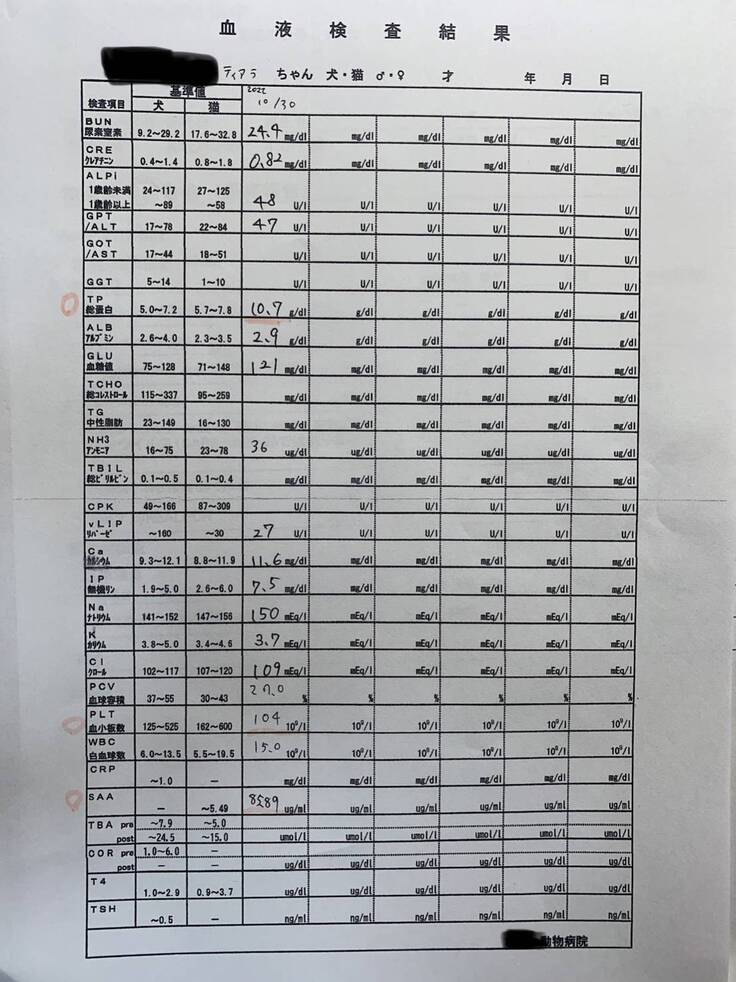 血液検査結果
ティアラ ちゃん 犬・猫 ♂・♀ 才 年 月 日
検査項目 基準値 2022
犬 猫 10/30
BUN
尿素窒素 9.2～29.2 17.6～32.8 24.4 mg/dl mg/dl mg/dl mg/dl mg/dl mg/dl
CRE
クレアチニン 0.4～1.4 0.8～1.8 0.82 mg/dl mg/dl mg/dl mg/dl mg/dl mg/dl
ALPi
1歳齢未満 24～117 27～125
1歳齢以上 ～89 ～58 48 U/l U/l U/l U/l U/l U/l
GPT
/ALT 17～78 22～84 47 U/l U/l U/l U/l U/l U/l
GOT
/AST 17～44 18～51 U/l U/l U/l U/l U/l U/l
GGT 5～14 1～10 U/l U/l U/l U/l U/l U/l
TP
総蛋白 5.0～7.2 5.7～7.8 10.7 g/dl g/dl g/dl g/dl g/dl g/dl
ALB
アルブミン 2.6～4.0 2.3～3.5 2.9 g/dl g/dl g/dl g/dl g/dl g/dl
GLU
血糖値 75～128 71～148 121 mg/dl mg/dl mg/dl mg/dl mg/dl mg/dl
TCHO
総コレストロール 115～337 95～259 mg/dl mg/dl mg/dl mg/dl mg/dl mg/dl
TG
中性脂肪 23～149 16～130 mg/dl mg/dl mg/dl mg/dl mg/dl mg/dl
NH3
アンモニア 16～75 23～78 36 ug/dl ug/dl ug/dl ug/dl ug/dl ug/dl
TBIL
総ビリルビン 0.1～0.5 0.1～0.4 mg/dl mg/dl mg/dl mg/dl mg/dl mg/dl
CPK 49～166 87～309 U/l U/l U/l U/l U/l U/l
vLIP
リパーゼ ～160 ～30 27 U/l U/l U/l U/l U/l U/l
Ca
カルシウム 9.3～12.1 8.8～11.9 11.6 mg/dl mg/dl mg/dl mg/dl mg/dl mg/dl
IP
無機リン 1.9～5.0 2.6～6.0 7.5 mg/dl mg/dl mg/dl mg/dl mg/dl mg/dl
Na
ナトリウム 141～152 147～156 150 mEq/l mEq/l mEq/l mEq/l mEq/l mEq/l
K
カリウム 3.8～5.0 3.4～4.6 3.7 mEq/l mEq/l mEq/l mEq/l mEq/l mEq/l
Cl
クロール 102～117 107～120 109 mEq/l mEq/l mEq/l mEq/l mEq/l mEq/l
PCV
血球容積 37～55 30～43 27.0 % % % % % %
PLT
血小板数 125～525 162～600 104 10⁹/l 10⁹/l 10⁹/l 10⁹/l 10⁹/l 10⁹/l
WBC
白血球数 6.0～13.5 5.5～19.5 15.0 10⁹/l 10⁹/l 10⁹/l 10⁹/l 10⁹/l 10⁹/l
CRP ～1.0 － mg/dl mg/dl mg/dl mg/dl mg/dl mg/dl
SAA － ～5.49 ug/ml ug/ml ug/ml ug/ml ug/ml ug/ml
TBA pre ～7.9 ～5.0
post ～24.5 ～15.0 umol/l umol/l umol/l umol/l umol/l umol/l
COR pre 1.0～6.0 －
post － － ug/dl ug/dl ug/dl ug/dl ug/dl ug/dl
T4 1.0～2.9 0.9～3.7 ug/dl ug/dl ug/dl ug/dl ug/dl ug/dl
TSH ～0.5 － ng/ml ng/ml ng/ml ng/ml ng/ml ng/ml
動物病院